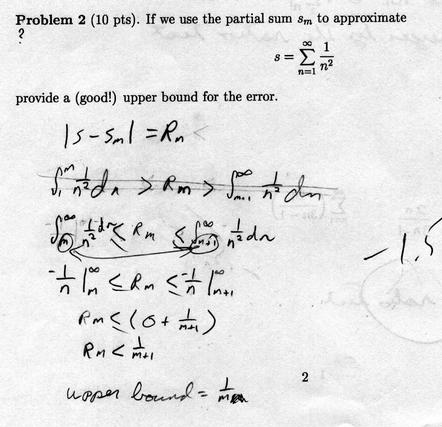 Problem 2 (10 pts). If we use the partial sum s_m to approximate
?
s = ∑_{n=1}^{∞} 1/n²
provide a (good!) upper bound for the error.
|s - s_m| = R_n <
∫_1^m 1/n² dn > R_m > ∫_{m+1}^∞ 1/n² dn
∫_m^∞ 1/n² dn ≤ R_m ≤ ∫_{n+1}^∞ 1/n² dn
- 1.5
-1/n |_m^∞ ≤ R_m ≤ -1/n |_{n+1}^∞
R_m ≤ (0 + 1/(m+1))
R_m < 1/(m+1)
upper bound = 1/m
2